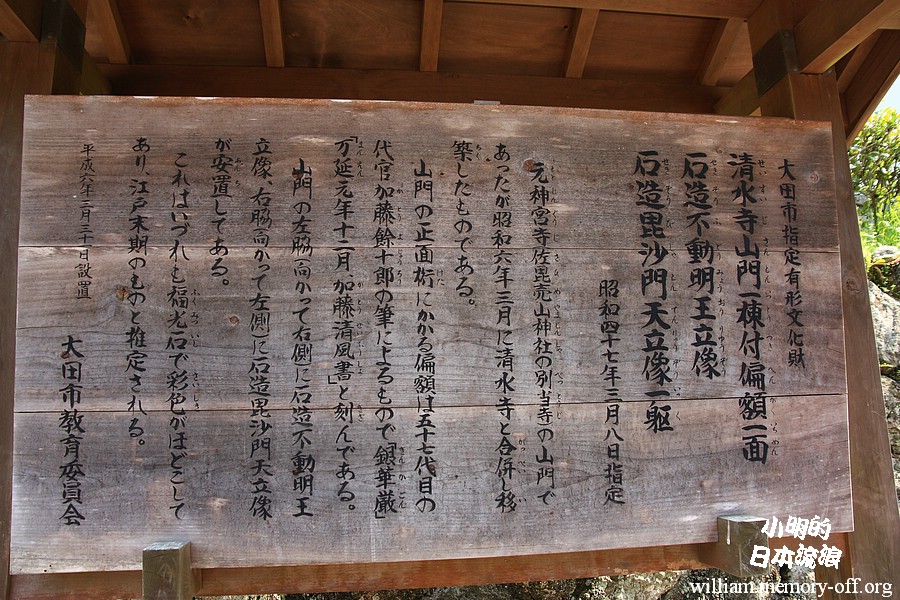 大田市指定有形文化財
清水寺山門一棟付偏額一面
石造不動明王立像
石造毘沙門天立像一躯
昭和四十七年三月八日指定
元神宮寺佐毘売山神社の別当寺の山門で
あったが昭和六年三月に清水寺と合併し移
築したものである。
山門の正面桁にかかる偏額は五十七代目の
代官加藤餘十郎の筆によるもので「銀華厳」
「万延元年十二月、加藤清風書」と刻んである。
山門の左脇向かって右側に石造不動明王
立像、右脇向かって左側に石造毘沙門天立像
が安置してある。
これはいづれも福光石で彩色がほどこして
あり、江戸末期のものと推定される。
平成六年三月三十一日設置
大田市教育委員会
小明的
日本流浪
william.memory-off.org